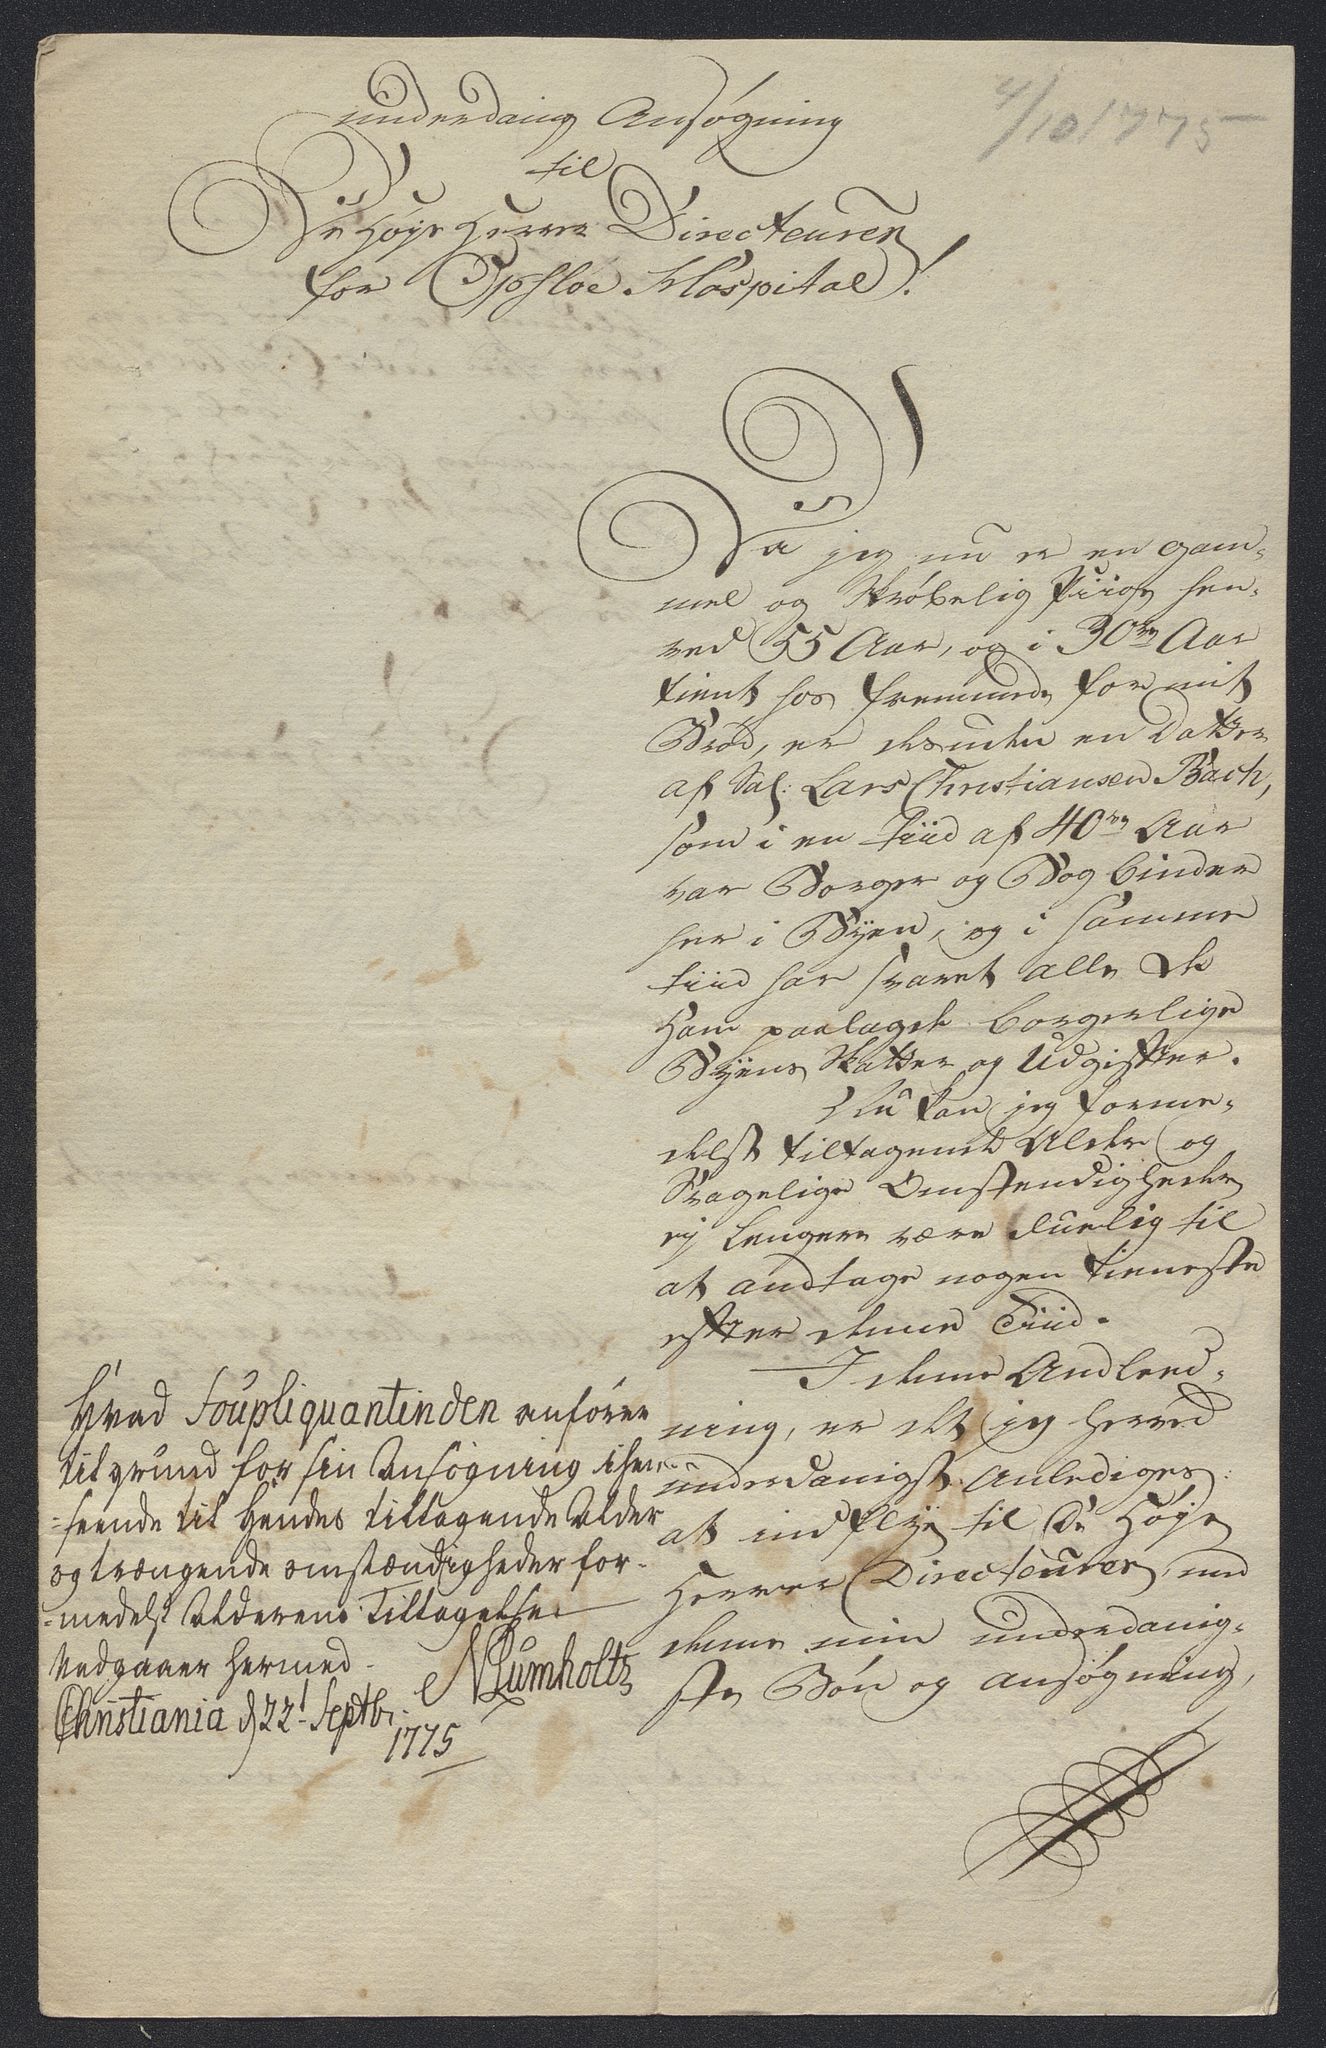 4/10 1775
underdanig Ansøgning
til
De Høye Herrer Directeurer
for Opsloe Hospital!
Da jeg nu er en gam-
mel og skrøbelig Piige hen-
ved 55 Aar, og i 30ve Aar
tient hos fremmede for mit
Brød, er desuden en Datter
af Sal: Lars Christiansen Bach,
som i en Tiid af 40ve Aar
var Borger og Bog binder
her i Byen, og i samme
tiid har svaret alle de
ham paalagde borgerlige
Byens Skatter og Udgifter.
Nu kan jeg forme-
delst tiltagende Alder og
Svagelige Omstendigheder
ej lengere være duelig til
at andtage nogen tieneste
efter denne Tiid.
I denne Andleed-
ning, er det jeg herved
underdanigst anlediges:
at indflye til De Høye
Herrer Directeurer, med
denne min underdanig-
ste Bøn og ansøgning,
Hvad Soupliquantinden anfører
til grund for sin Ansøgning i hen-
=seende til Hendes tiltagende Alder
og trængende omstændigheder for-
=medelst Alderens Tiltagelse
Vedgaaer hermed.
NLumholtz
Christiania d 22t Septbr.
1775